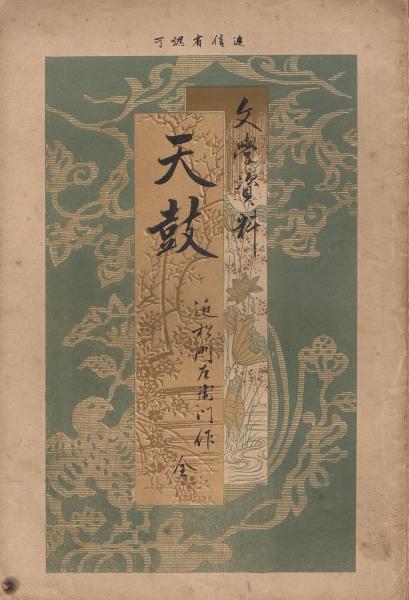 遞信省認可
文學資料
天鼓
近松門左衛門作
全